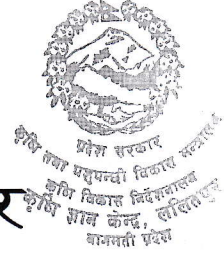 प्रदेश सरकार
कृषि तथा पशुपन्छी विकास मन्त्रालय
कृषि विकास निर्देशनालय
कृषि ज्ञान केन्द्र, ललितपुर
बागमती प्रदेश